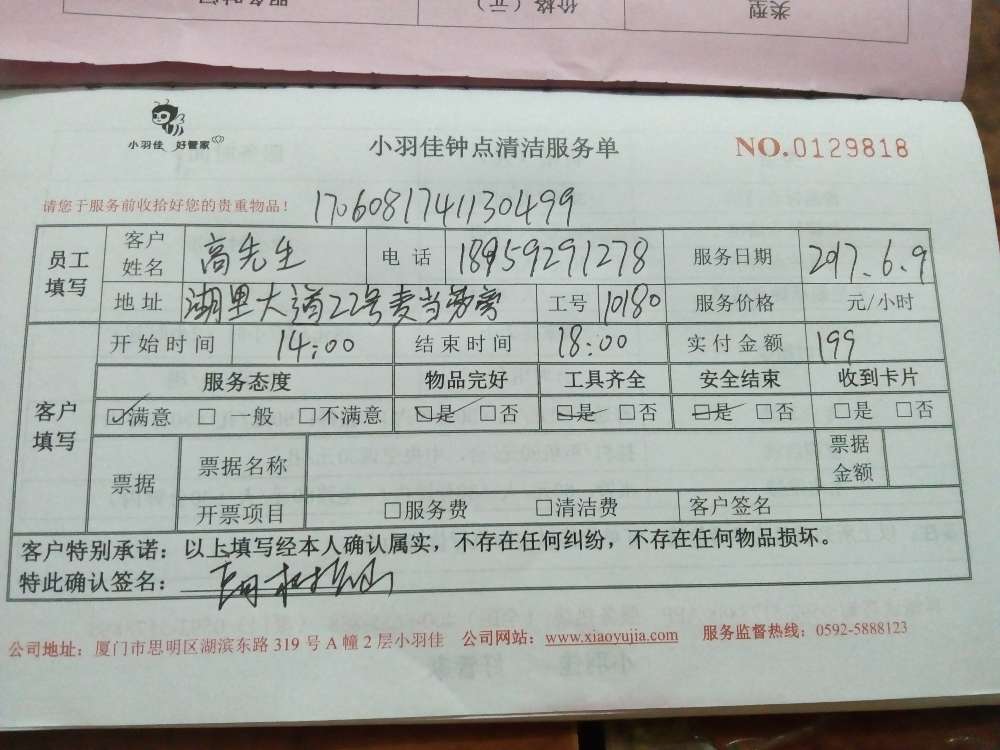 类型 价格（元） 服务时间
小羽佳 好管家
小羽佳钟点清洁服务单
NO.0129818
请您于服务前收拾好您的贵重物品！ 1706081741130499
员工填写 客户姓名 高先生 电话 18959291278 服务日期 2017.6.9
地址 湖里大道22号麦当劳旁 工号 10180 服务价格 元/小时
客户填写 开始时间 14:00 结束时间 18:00 实付金额 199
服务态度 物品完好 工具齐全 安全结束 收到卡片
☑满意 □一般 □不满意 ☑是 □否 ☑是 □否 ☑是 □否 □是 □否
票据 票据名称 票据金额
开票项目 □服务费 □清洁费 客户签名
客户特别承诺：以上填写经本人确认属实，不存在任何纠纷，不存在任何物品损坏。
特此确认签名：
公司地址：厦门市思明区湖滨东路319号A幢2层小羽佳 公司网站：www.xiaoyujia.com 服务监督热线：0592-5888123